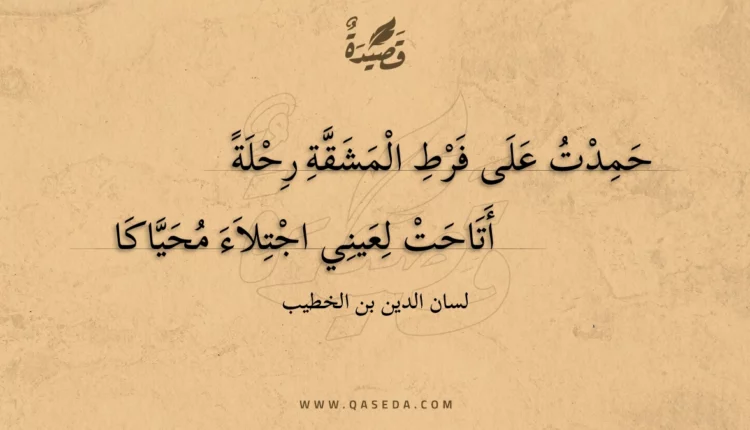 قَصِيْدَةٌ
حَمِدْتُ عَلَى فَرْطِ الْمَشَقَّةِ رِحْلَةً
أَتَاحَتْ لِعَينِي اجْتِلاَءَ مُحَيَّاكَا
لسان الدين بن الخطيب
WWW.QASEDA.COM